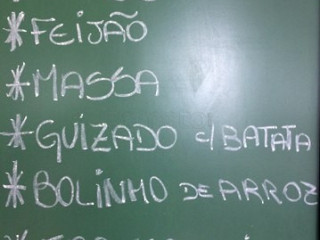 *FEIJÃO
*MASSA
*GUIZADO c/ BATATA
*BOLINHO DE ARROZ